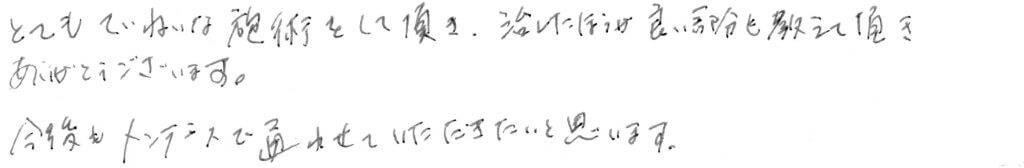 とてもていねいな施術をして頂き、治したほうが良い部分も教えて頂き
ありがとうございます。
今後もメンテナンスで通わせていただきたいと思います。